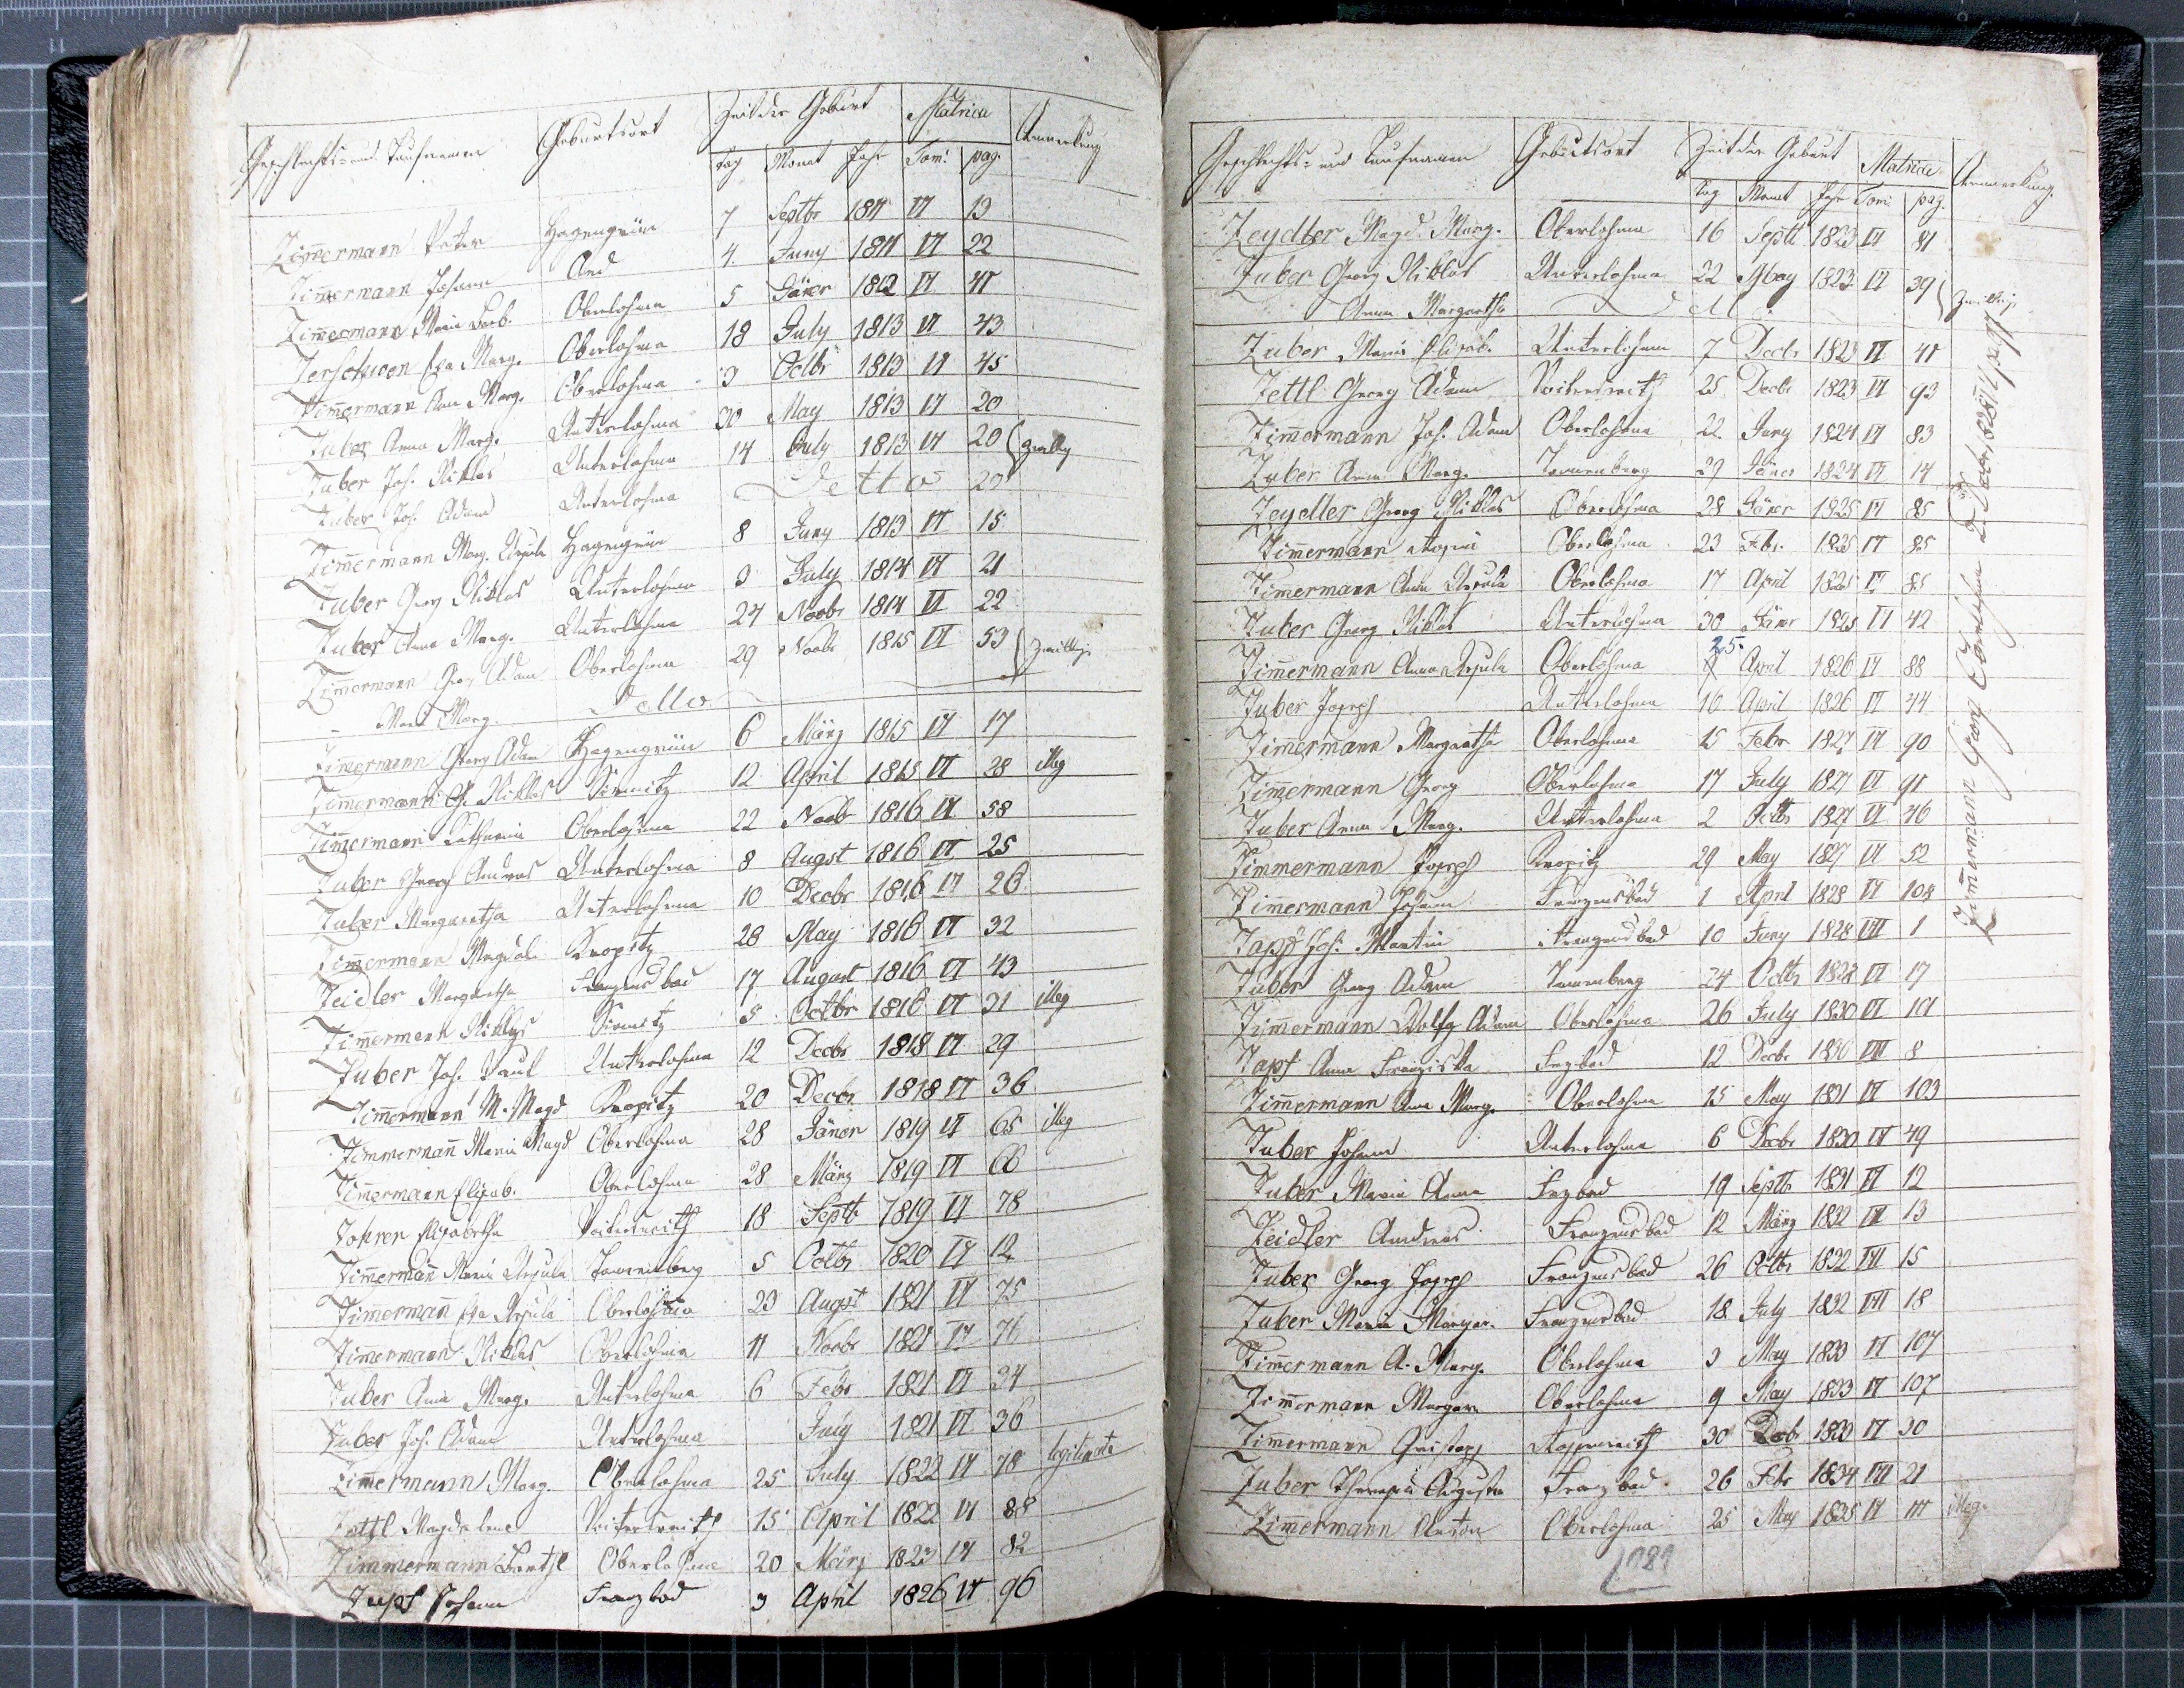 Geschlechts- und Taufnamen Geburtsort Zeit der Geburt Matrica Anmerkung
Tag Monat Jahr Tom: pag.
Zimmermann Peter Hagengrün 7 Septbr 1811 VI 13
Zimmermann Johann Aed 4. Juny 1811 VI 22
Zimmermann Maria Barb. Oberlohma 5 Jäner 1812 VI 41
Eva Marg. Oberlohma 18 July 1813 VI 43
Zimmermann Ana Marg. Oberlohma 3 Octbr 1813 VI 45
Zuber Anna Marg. Unterlohma 30 May 1813 VI 20
Zuber Joh. Niklas Unterlohma 14 July 1813 VI 20
Zuber Joh. Adam Unterlohma Detto 20
Zimmermann Marg. Ursula Hagengrün 8 Juny 1813 VI 15
Zuber Georg Niklas Unterlohma 3 July 1814 VI 21
Zuber Anna Marg. Unterlohma 24 Novbr 1814 VI 22
Zimmermann Georg Adam Oberlohma 29 Novbr 1815 VI 53 Zwillige
– Maria Marg. Detto
Zimmermann Georg Adam Hagengrün 6 März 1815 VI 17
Zimmermann G. Niklas Sirmitz 12 April 1815 VI 28 illeg
Zimmermann Katharina Oberlohma 22 Novb 1816 VI 58
Zuber Georg Andreas Unterlohma 8 Augst 1816 VI 25
Zuber Margaretha Unterlohma 10 Decbr 1816 VI 26
Zimmermann Magdal. Kropitz 28 May 1816 VI 32
Zeidler Margaretha Franzensbad 17 August 1816 VI 43
Zimmermann Niklas Sirmitz 5 Octbr 1816 VI 31 illeg
Zuber Joh. Paul Unterlohma 12 Decbr 1818 VI 29
Zimmermann M. Magd Kropitz 20 Decbr 1818 VI 36
Zimmermann Maria Magd Oberlohma 28 Jäner 1819 VI 65 illeg
Zimmermann Elisab. Oberlohma 28 März 1819 VI 66
Elisabetha Voitersreith 18 Septb 1819 VI 78
Zimmermann Maria Ursula Tannenberg 5 Octbr 1820 VI 12
Zimmermann Eva Ursula Oberlohma 23 Augst 1821 VI 75
Zimmermann Niklas Oberlohma 11 Novbr 1821 VI 76
Zuber Anna Marg. Unterlohma 6 Febr 1821 VI 34
Zuber Joh. Adam Unterlohma July 1821 VI 36
Zimmermann Marg. Oberlohma 25 July 1822 VI 78 legitimata
Zettl Magdalena Voitersreith 15 April 1822 VI 88
Zimmermann Barthl Oberlohma 20 März 1823 VI 82
Zapf Johann Franzbad 3 April 1826 VI 96
Geschlechts- und Taufnamen Geburtsort Zeit der Geburt Matricae Anmerkung.
Tag Monat Jahr Tom: pag.
Zeydler Magd. Marg. Oberlohma 16 Septb 1823 VI 81
Zuber Georg Niklas Unterlohma 22 May 1823 VI 39 Zwillinge
Anna Margaretha
Zuber Maria Elisab. Unterlohma 7 Decbr 1823 VI 41
Zettl Georg Adam Voitersreith 25 Decbr 1823 VI 93
Zimmermann Joh. Adam Oberlohma 22 Juny 1824 VI 83
Zuber Anna Marg. Tannenberg 29 Jäner 1824 VI 14
Zeydler Georg Niklas Oberlohma 28 Jäner 1825 VI 85
Zimmermann Oberlohma 23 Febr. 1825 VI 85
Zimmermann Anna Ursula Oberlohma 17 April 1825 VI 85
Zuber Georg Niklas Unterlohma 30 Jäner 1825 VI 42
25.
Zimmermann Anna Ursula Oberlohma April 1826 VI 88
Zuber Joseph Unterlohma 16 April 1826 VI 44
Zimmermann Margaretha Oberlohma 15 Febr 1827 VI 90
Zimmermann Georg Oberlohma 17 July 1827 VI 91
Zuber Anna Marg. Unterlohma 2 Octbr 1827 VI 46
Zimmermann Joseph Kropitz 29 May 1827 VI 52
Zimmermann Johann Franzensbad 1 April 1828 VI 108
Zapf Joh. Martin Franzensbad 10 Juny 1828 VII 1
Zuber Georg Adam Tannenberg 24 Octbr 1828 VI 17
Zimmermann Wolfg Adam Oberlohma 26 July 1830 VI 101
Zapf Anna Franziska Frzbad 12 Decbr 1830 VII 8
Zimmermann Ana Marg. Oberlohma 15 May 1831 VI 103
Zuber Johann Unterlohma 6 Decbr 1830 VI 49
Zuber Maria Anna Frzbad 19 Septbr 1831 VII 12
Zeidler Andreas Franzensbad 12 März 1832 VII 13
Zuber Georg Joseph Franzensbad 26 Octbr 1832 VII 15
Zuber Maria Margar. Franzensbad 18 July 1832 VII 18
Zimmermann A. Marg. Oberlohma 3 May 1833 VI 107
Zimmermann Margar. Oberlohma 9 May 1833 VI 107
Zimmermann Christoph 30 Decb 1833 VI 30
Zuber Theresia Augusta Franzbad 26 Febr 1834 VII 21
Zimmermann Anton Oberlohma 25 May 1835 VI 111 illeg.
Zimmermann Georg
181